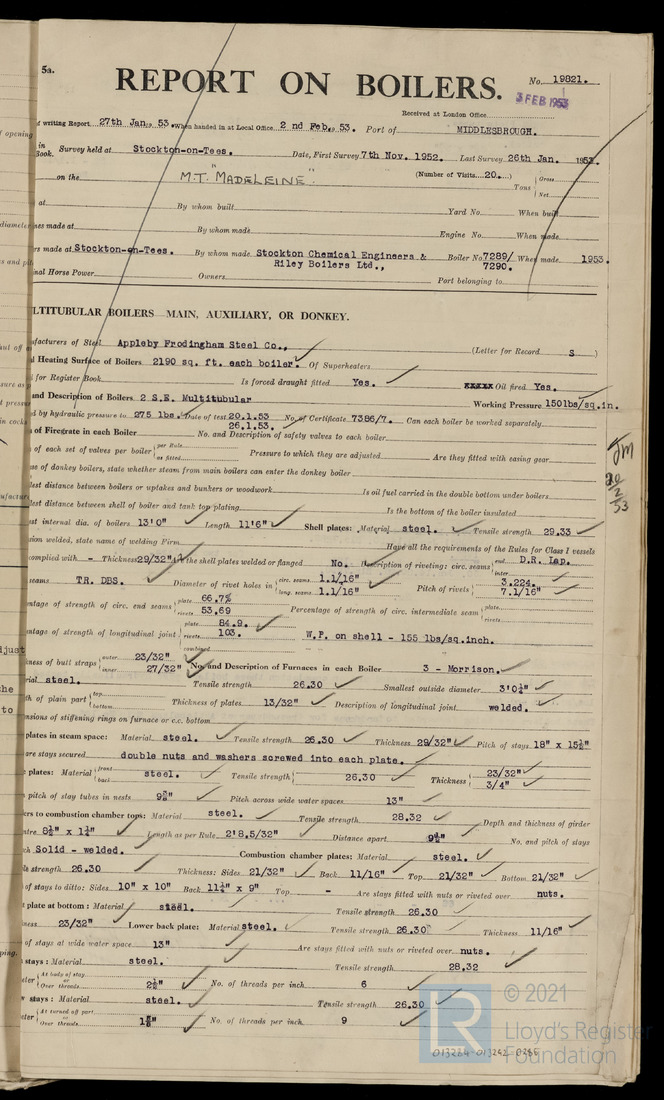 5a.
REPORT ON BOILERS.
No. 19821.
3 FEB 1953
Received at London Office
of writing Report 27th Jan. 19 53. When handed in at Local Office 2 nd Feb. 19 53. Port of MIDDLESBROUGH.
in Book. Survey held at Stockton-on-Tees. Date, First Survey 7th Nov. 1952. Last Survey 26th Jan. 1953.
on the M.T. "MADELEINE". (Number of Visits 20. ) Tons Gross Net
at By whom built Yard No. When built
nes made at By whom made Engine No. When made
rs made at Stockton-on-Tees. By whom made Stockton Chemical Engineers & Riley Boilers Ltd., Boiler No. 7289/ 7290. When made 1953.
nal Horse Power Owners Port belonging to
LTITUBULAR BOILERS MAIN, AUXILIARY, OR DONKEY.
ufacturers of Steel Appleby Frodingham Steel Co., (Letter for Record S )
l Heating Surface of Boilers 2190 sq. ft. each boiler. Of Superheaters
for Register Book Is forced draught fitted Yes. Oil fired Yes.
and Description of Boilers 2 S.E. Multitubular Working Pressure 150lbs/sq.in.
d by hydraulic pressure to 275 lbs. Date of test 20.1.53 26.1.53 No. of Certificate 7386/7. Can each boiler be worked separately
of Firegrate in each Boiler No. and Description of safety valves to each boiler
of each set of valves per boiler per Rule as fitted Pressure to which they are adjusted Are they fitted with easing gear
se of donkey boilers, state whether steam from main boilers can enter the donkey boiler
lest distance between boilers or uptakes and bunkers or woodwork Is oil fuel carried in the double bottom under boilers
lest distance between shell of boiler and tank top plating Is the bottom of the boiler insulated
est internal dia. of boilers 13'0" Length 11'6" Shell plates: Material steel. Tensile strength 29.33
sion welded, state name of welding Firm Have all the requirements of the Rules for Class I vessels
complied with - Thickness 29/32" Are the shell plates welded or flanged No. Description of riveting: circ. seams end D.R. Lap. inter
seams TR. DBS. Diameter of rivet holes in circ. seams 1.1/16" long. seams 1.1/16" Pitch of rivets 3.224. 7.1/16"
entage of strength of circ. end seams plate 66.7% rivets 53.69 Percentage of strength of circ. intermediate seam plate rivets
entage of strength of longitudinal joint plate 84.9. rivets 103. combined W.P. on shell - 155 lbs/sq.inch.
kness of butt straps outer 23/32" inner 27/32" No. and Description of Furnaces in each Boiler 3 - Morrison.
rial steel. Tensile strength 26.30 Smallest outside diameter 3'0¼"
th of plain part top bottom Thickness of plates 13/32" Description of longitudinal joint welded.
ensions of stiffening rings on furnace or c.c. bottom
plates in steam space: Material steel. Tensile strength 26.30 Thickness 29/32" Pitch of stays 18" x 15½"
are stays secured double nuts and washers screwed into each plate.
plates: Material front back steel. Tensile strength 26.30 Thickness 23/32" 3/4"
pitch of stay tubes in nests Pitch across wide water spaces 13"
ers to combustion chamber tops: Material steel. Tensile strength 28.32 Depth and thickness of girder
ntre 8½" x 1¾" Length as per Rule 2'8.5/32" Distance apart 9½" No. and pitch of stays
ch Solid - welded. Combustion chamber plates: Material steel.
le strength 26.30 Thickness: Sides 21/32" Back 11/16" Top 21/32" Bottom 21/32"
of stays to ditto: Sides 10" x 10" Back 11¼" x 9" Top - Are stays fitted with nuts or riveted over nuts.
t plate at bottom: Material steel. Tensile strength 26.30
ness 23/32" Lower back plate: Material steel. Tensile strength 26.30 Thickness 11/16"
of stays at wide water space 13" Are stays fitted with nuts or riveted over nuts.
stays: Material steel. Tensile strength 28.32
eter At body of stay or Over threads 2½" No. of threads per inch 6
stays: Material steel. Tensile strength 26.30
eter At turned off part or Over threads No. of threads per inch 9
20/2/53
LR
© 2021
Lloyd's Register
Foundation
013284-013292-0285